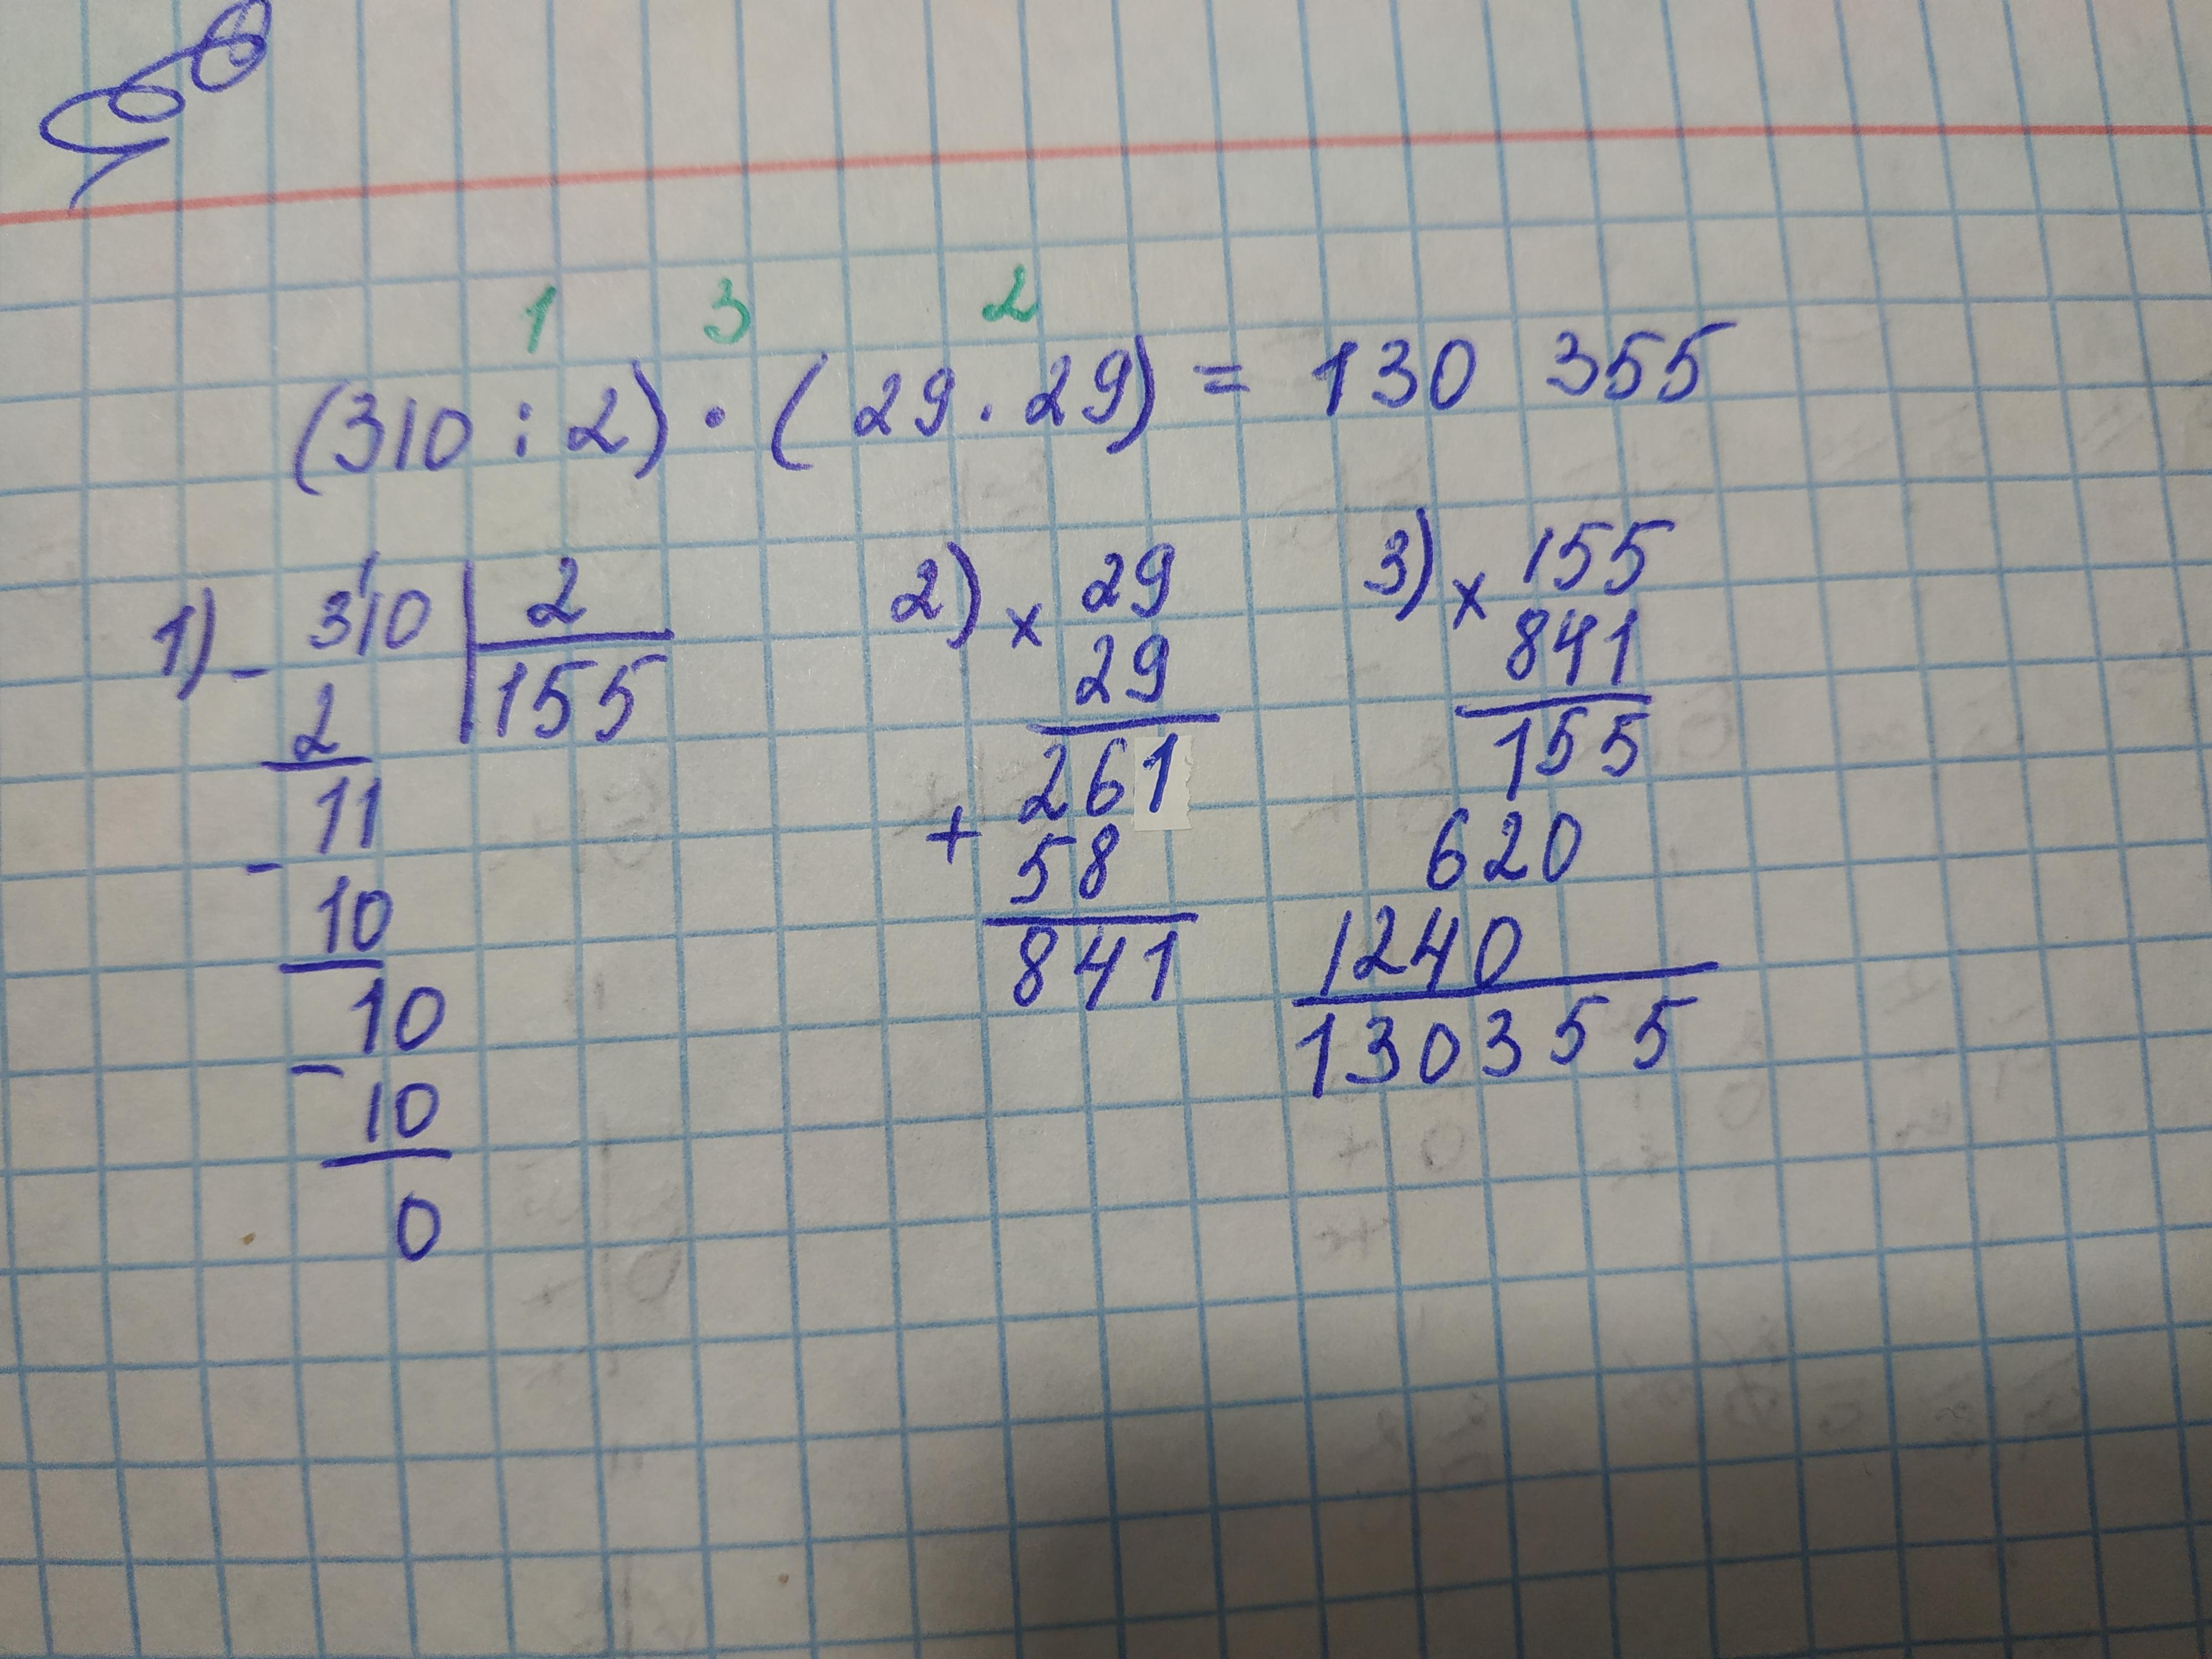 1 3 2
(310 : 2) · (29 · 29) = 130 355
1) - 310 | 2
2 155
11
- 10
10
- 10
0
2) x 29
29
261
+ 58
841
3) x 155
841
155
620
1240
130355